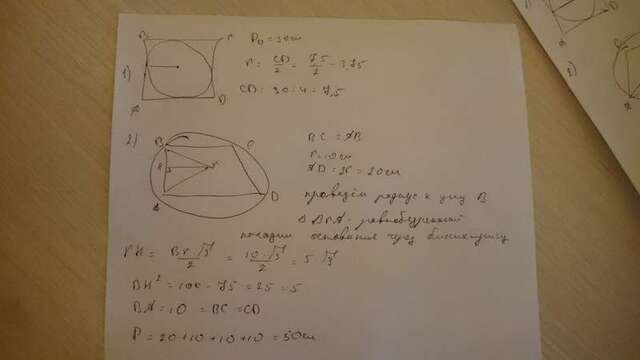 1)
D
P▫ = 30см
r = CD/2 = 7,5/2 = 3,75
CD = 30 : 4 = 7,5
2)
B C
H r
A D
BC = AB
r = 10см
AD = 2r = 20см
проведём радиус к углу B
△ BrA - равнобедренный
основания через биссектрису
rH = Br·√3/2 = 10·√3/2 = 5√3
BH² = 100 - 75 = 25 = 5
BA = 10 = BC = CD
P = 20 + 10 + 10 + 10 = 50см